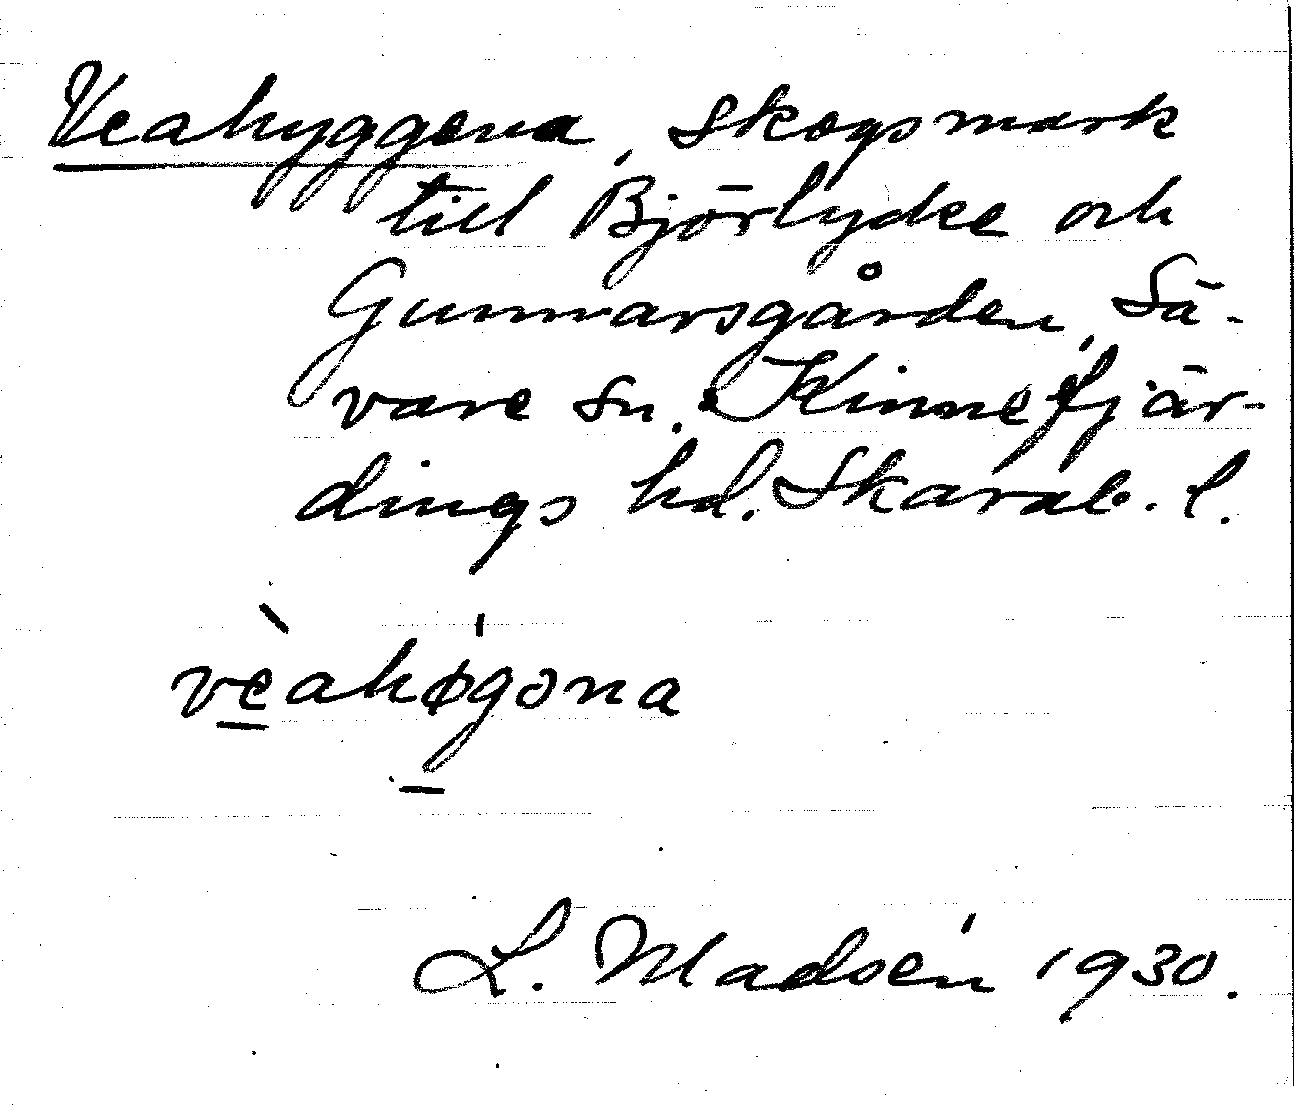 Veahyggena, skogsmark
till Björlycke och
Gunnarsgården, Sä-
vare sn. Kinnefjär-
dings hd. Skarab. l.
vèahø̍gǝna
L. Madsén 1930.